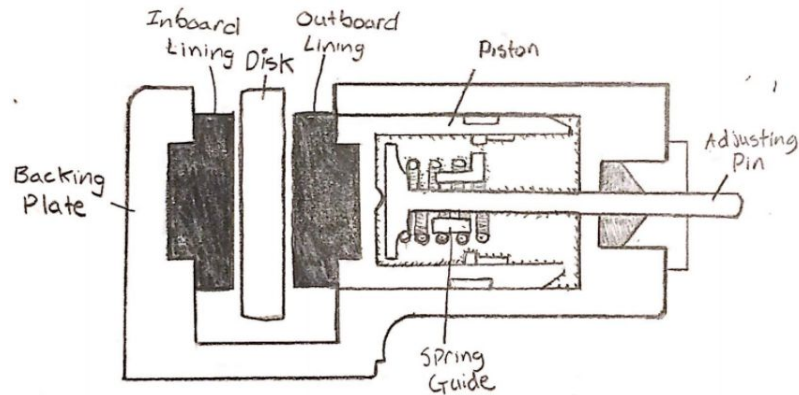 Inboard
Lining
Outboard
Lining
Disk
Piston
Adjusting
Pin
Backing
Plate
Spring
Guide